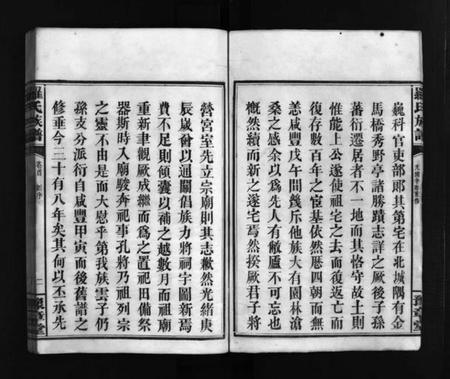 羅氏族譜
巍科官吏部郎其第宅在北城隅有金
馬橋秀野亭諸勝蹟志詳之厥後子孫
蕃衍遷居者不一地而其恪守故土則
惟能上公遂使祖宅之去而復返亡而
復存數百年之宦基依然歷四朝而無
恙咸豐戊午間幾斥他族大有園林滄
桑之感余以爲先人有敝廬不可忘也
慨然續而新之遂宅焉然揆厥君子將
豫章堂
營宮室先立宗廟則其志歉然光緒庚
辰歲曾以通關倡族力將祠宇圖新焉
費不足則傾囊以補之越數月而祖廟
重新聿觀厥成繼而爲之置祀田備祭
器斯時入廟駿奔祀事孔將乃祖列宗
之靈不由是而大慰乎第我族雲子仍
孫支分派衍自咸豐甲寅而後舊譜之
修垂今二十有八年矣其何以丕承先
羅氏族譜
豫章堂